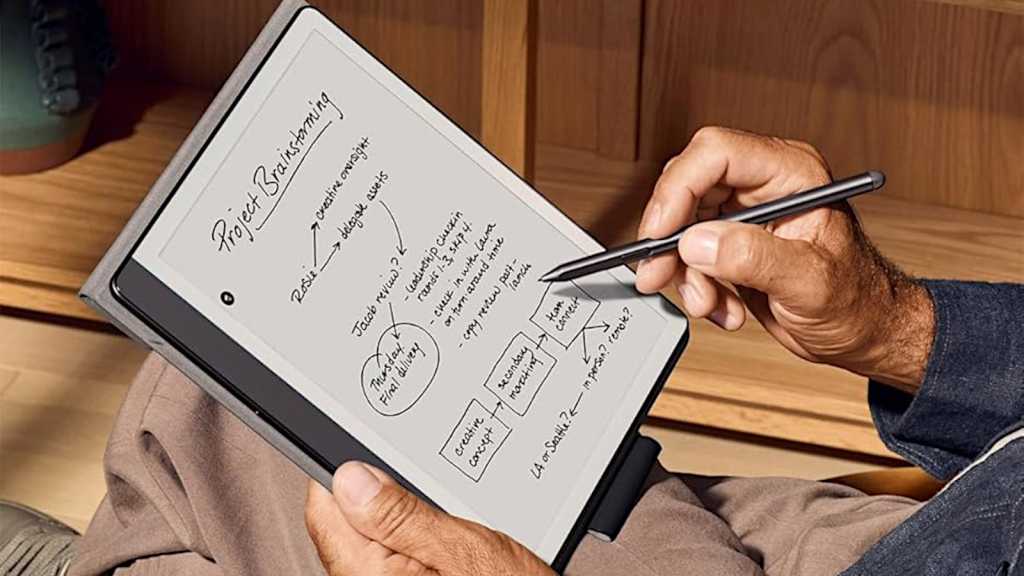 Project Brainstorming
Rosie → creative oversight
→ delegate assets
Jacob review?
- leadership check in
round 1.3 skip 4
- check in with Laura
on turn-around time
- copy review post-
lunch
Thursday
Final delivery
creative
concept
secondary
meeting
team
connect
in person? remote?
LA or Seattle?